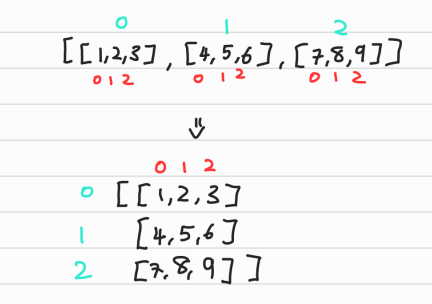 0 1 2
[[1,2,3],[4,5,6],[7,8,9]]
0 1 2 0 1 2 0 1 2
0 1 2
0 [[1,2,3]
1 [4,5,6]
2 [7,8,9]]